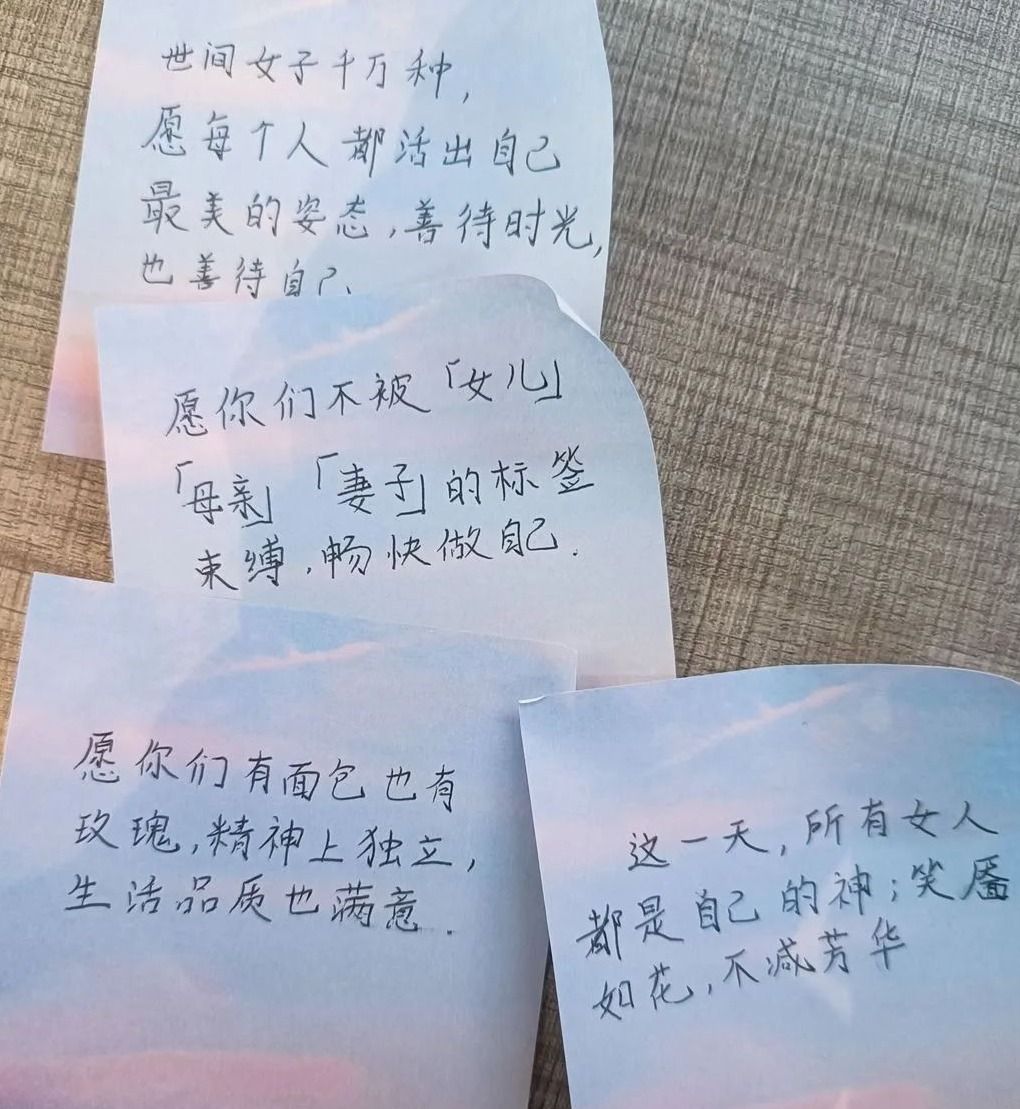 世间女子千万种,
愿每个人都活出自己
最美的姿态,善待时光,
也善待自己.
愿你们不被「女儿」
「母亲」「妻子」的标签
束缚,畅快做自己.
愿你们有面包也有
玫瑰,精神上独立,
生活品质也满意.
这一天,所有女人
都是自己的神;笑靥
如花,不减芳华